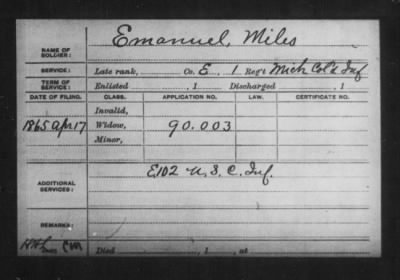 NAME OF SOLDIER: Emanuel, Miles
SERVICE: Late rank, Co. E, 1 Reg't Mich Col'd Inf
TERM OF SERVICE: Enlisted , 1 Discharged , 1
DATE OF FILING. CLASS. APPLICATION NO. LAW. CERTIFICATE NO.
Invalid,
1865 Apr 17 Widow, 90.003
Minor,
ADDITIONAL SERVICES: E102 U.S.C. Inf.
REMARKS:
Died , 1 , at